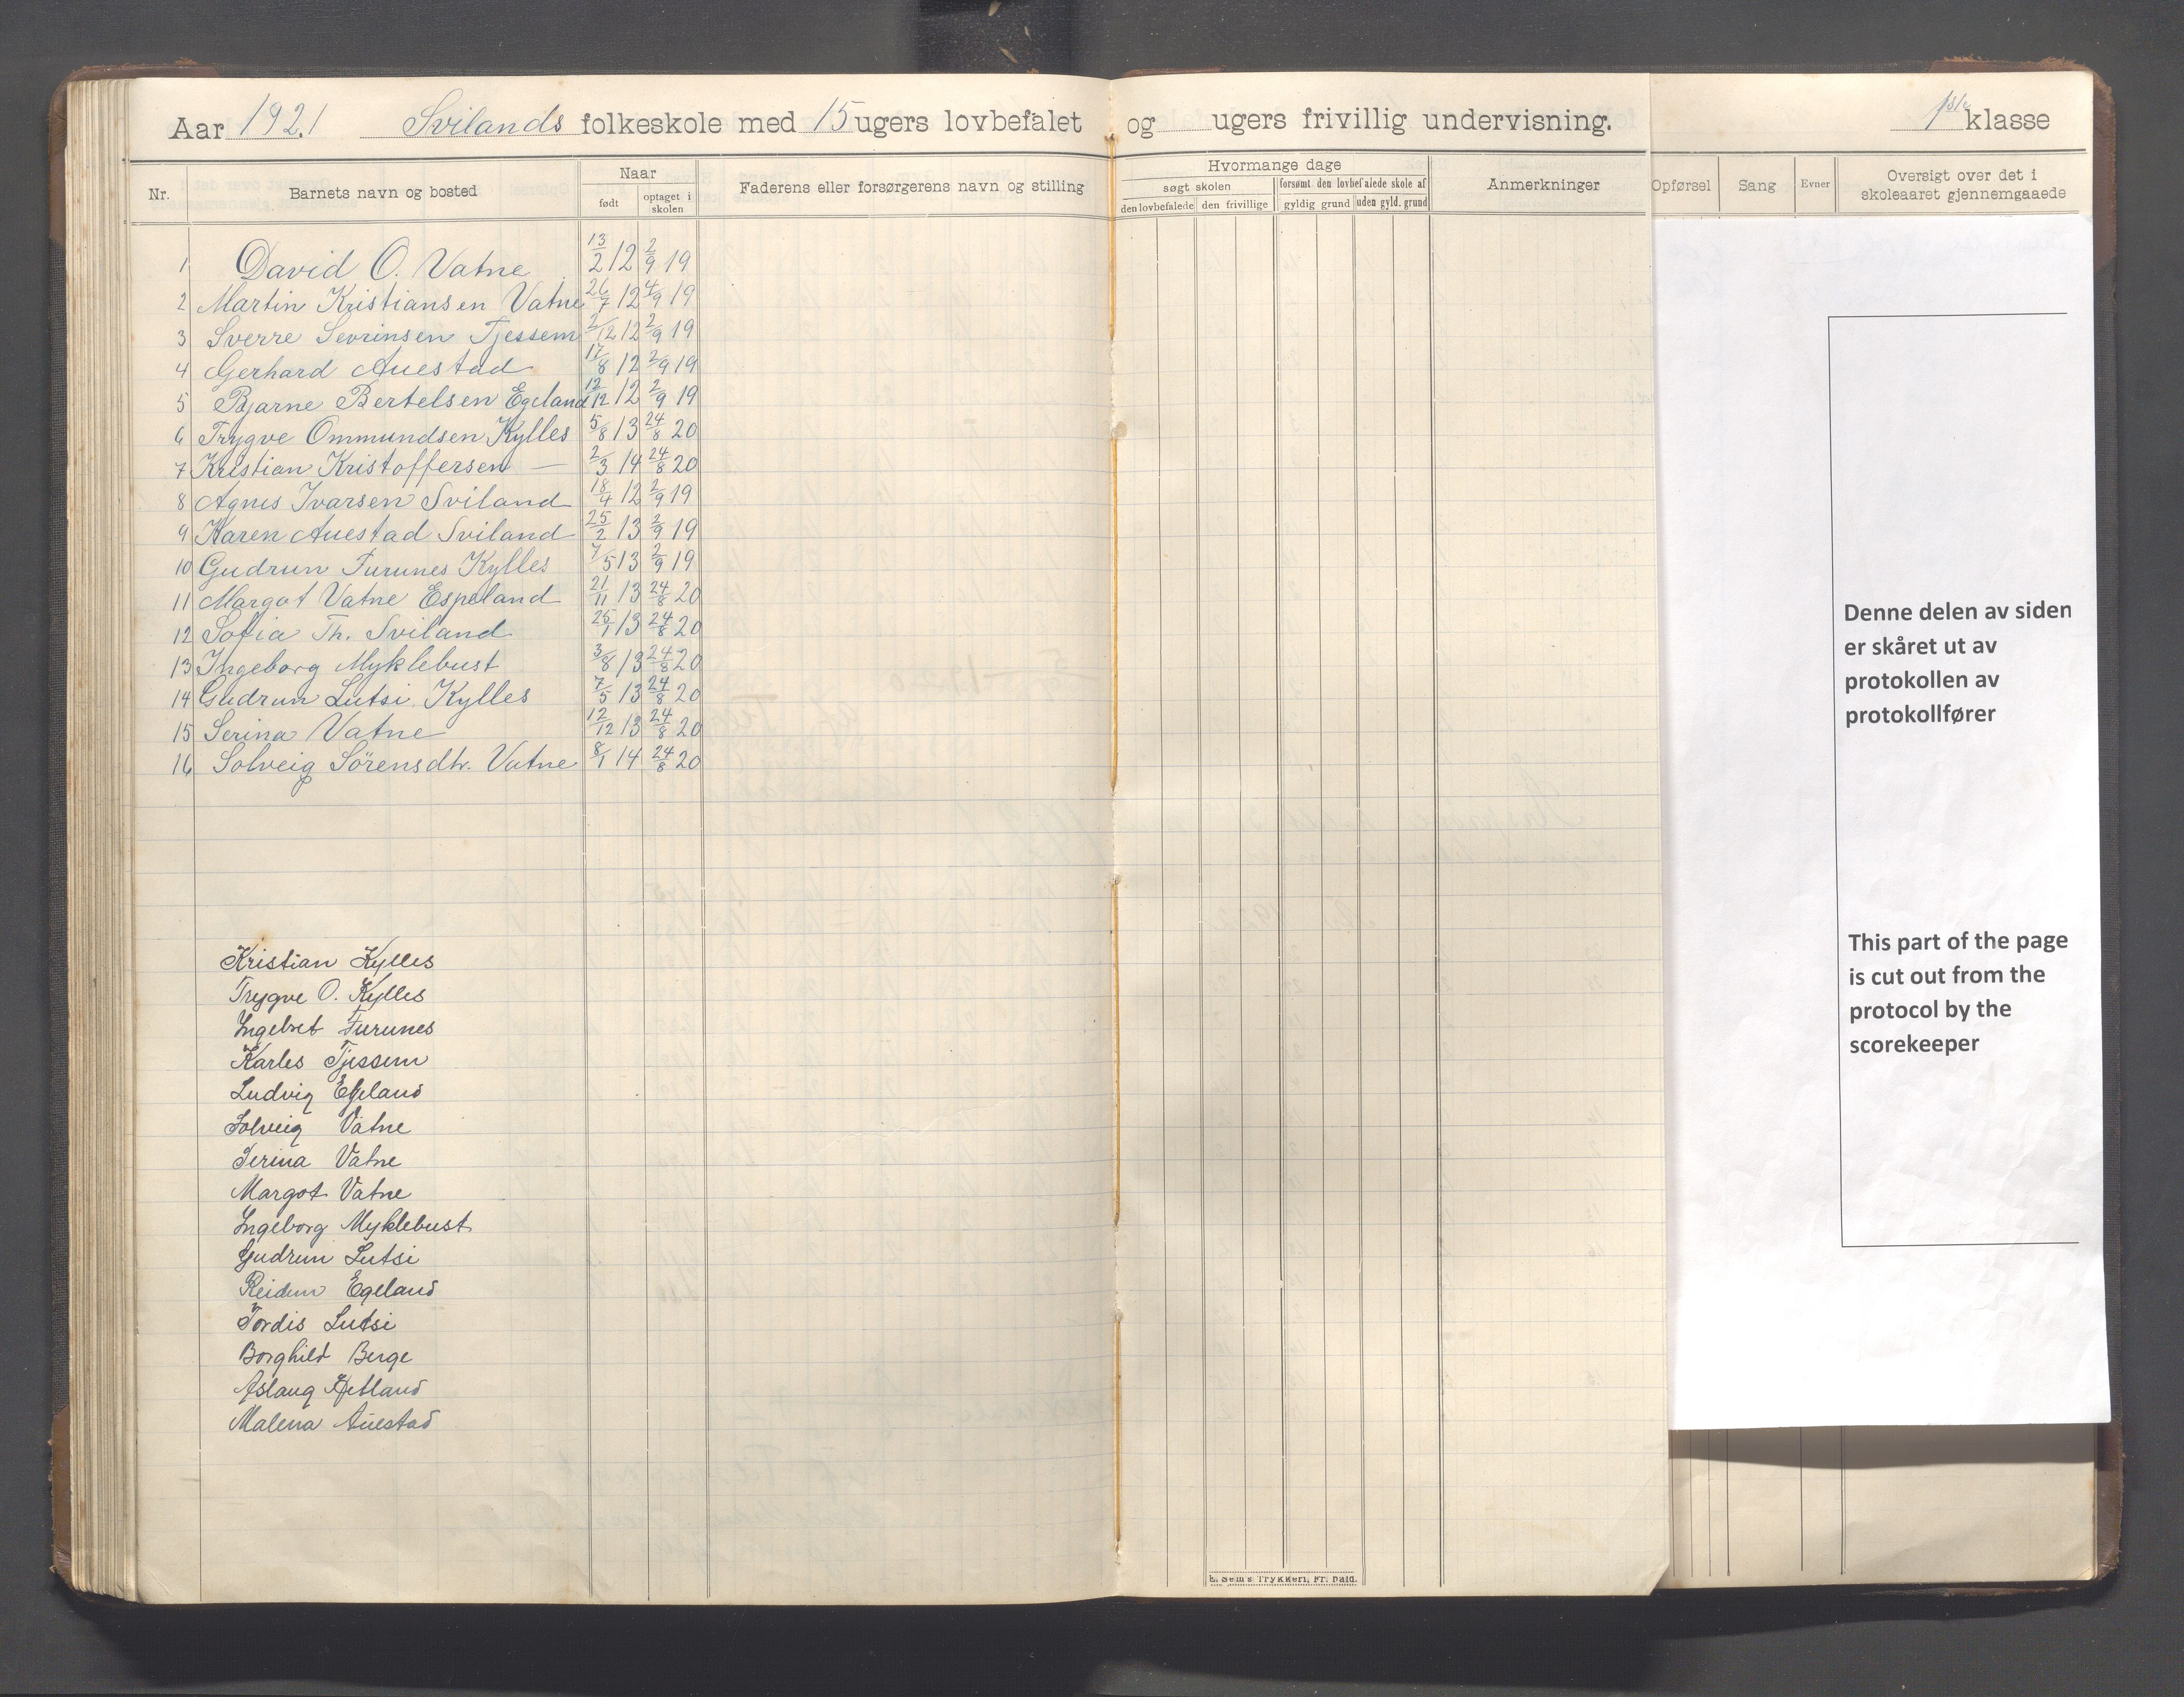 Aar 1921 Svilands folkeskole med 15 ugers lovbefalet og ugers frivillig undervisning. 1ste klasse
Nr. Barnets navn og bosted Naar født optaget i skolen Faderens eller forsørgerens navn og stilling Hvormange dage søgt skolen den lovbefalede den frivillige forsømt den lovbefalede skole af gyldig grund uden gyld. grund Anmerkninger Opførsel Sang Evner Oversigt over det i skoleaaret gjennemgaaede
1 David O. Vatne 13/2 12 2/9 19
2 Martin Kristiansen Vatne 26/7 12 4/9 19
3 Sverre Sevrinsen Tjessem 2/12 12 2/9 19
4 Gerhard Auestad 17/8 12 2/9 19
5 Bjarne Bertelsen Egeland 12/12 12 2/9 19
6 Trygve Ommundsen Kylles 5/8 13 24/8 20
7 Kristian Kristoffersen — 2/3 14 24/8 20
8 Agnes Ivarsen Sviland 18/4 12 2/9 19
9 Karen Auestad Sviland 25/2 13 2/9 19
10 Gudrun Furunes Kylles 7/5 13 2/9 19
11 Margot Vatne Espeland 21/11 13 24/8 20
12 Sofia Th. Sviland 25/1 13 24/8 20
13 Ingeborg Myklebust 3/8 13 24/8 20
14 Gudrun Lutsi Kylles 7/5 13 24/8 20
15 Serina Vatne 12/12 13 24/8 20
16 Solveig Sörensdtr. Vatne 8/1 14 24/8 20
Kristian Kylles
Trygve O. Kylles
Ingebret Furunes
Karles Tjessem
Ludvig Egeland
Solveig Vatne
Serina Vatne
Margot Vatne
Ingeborg Myklebust
Gudrun Lutsi
Reidun Egeland
Tordis Lutsi
Borghild Berge
Aslaug Hetland
Malena Auestad
E. Sem's Trykkeri, Fr.hald.
Denne delen av siden
er skåret ut av
protokollen av
protokollfører
This part of the page
is cut out from the
protocol by the
scorekeeper